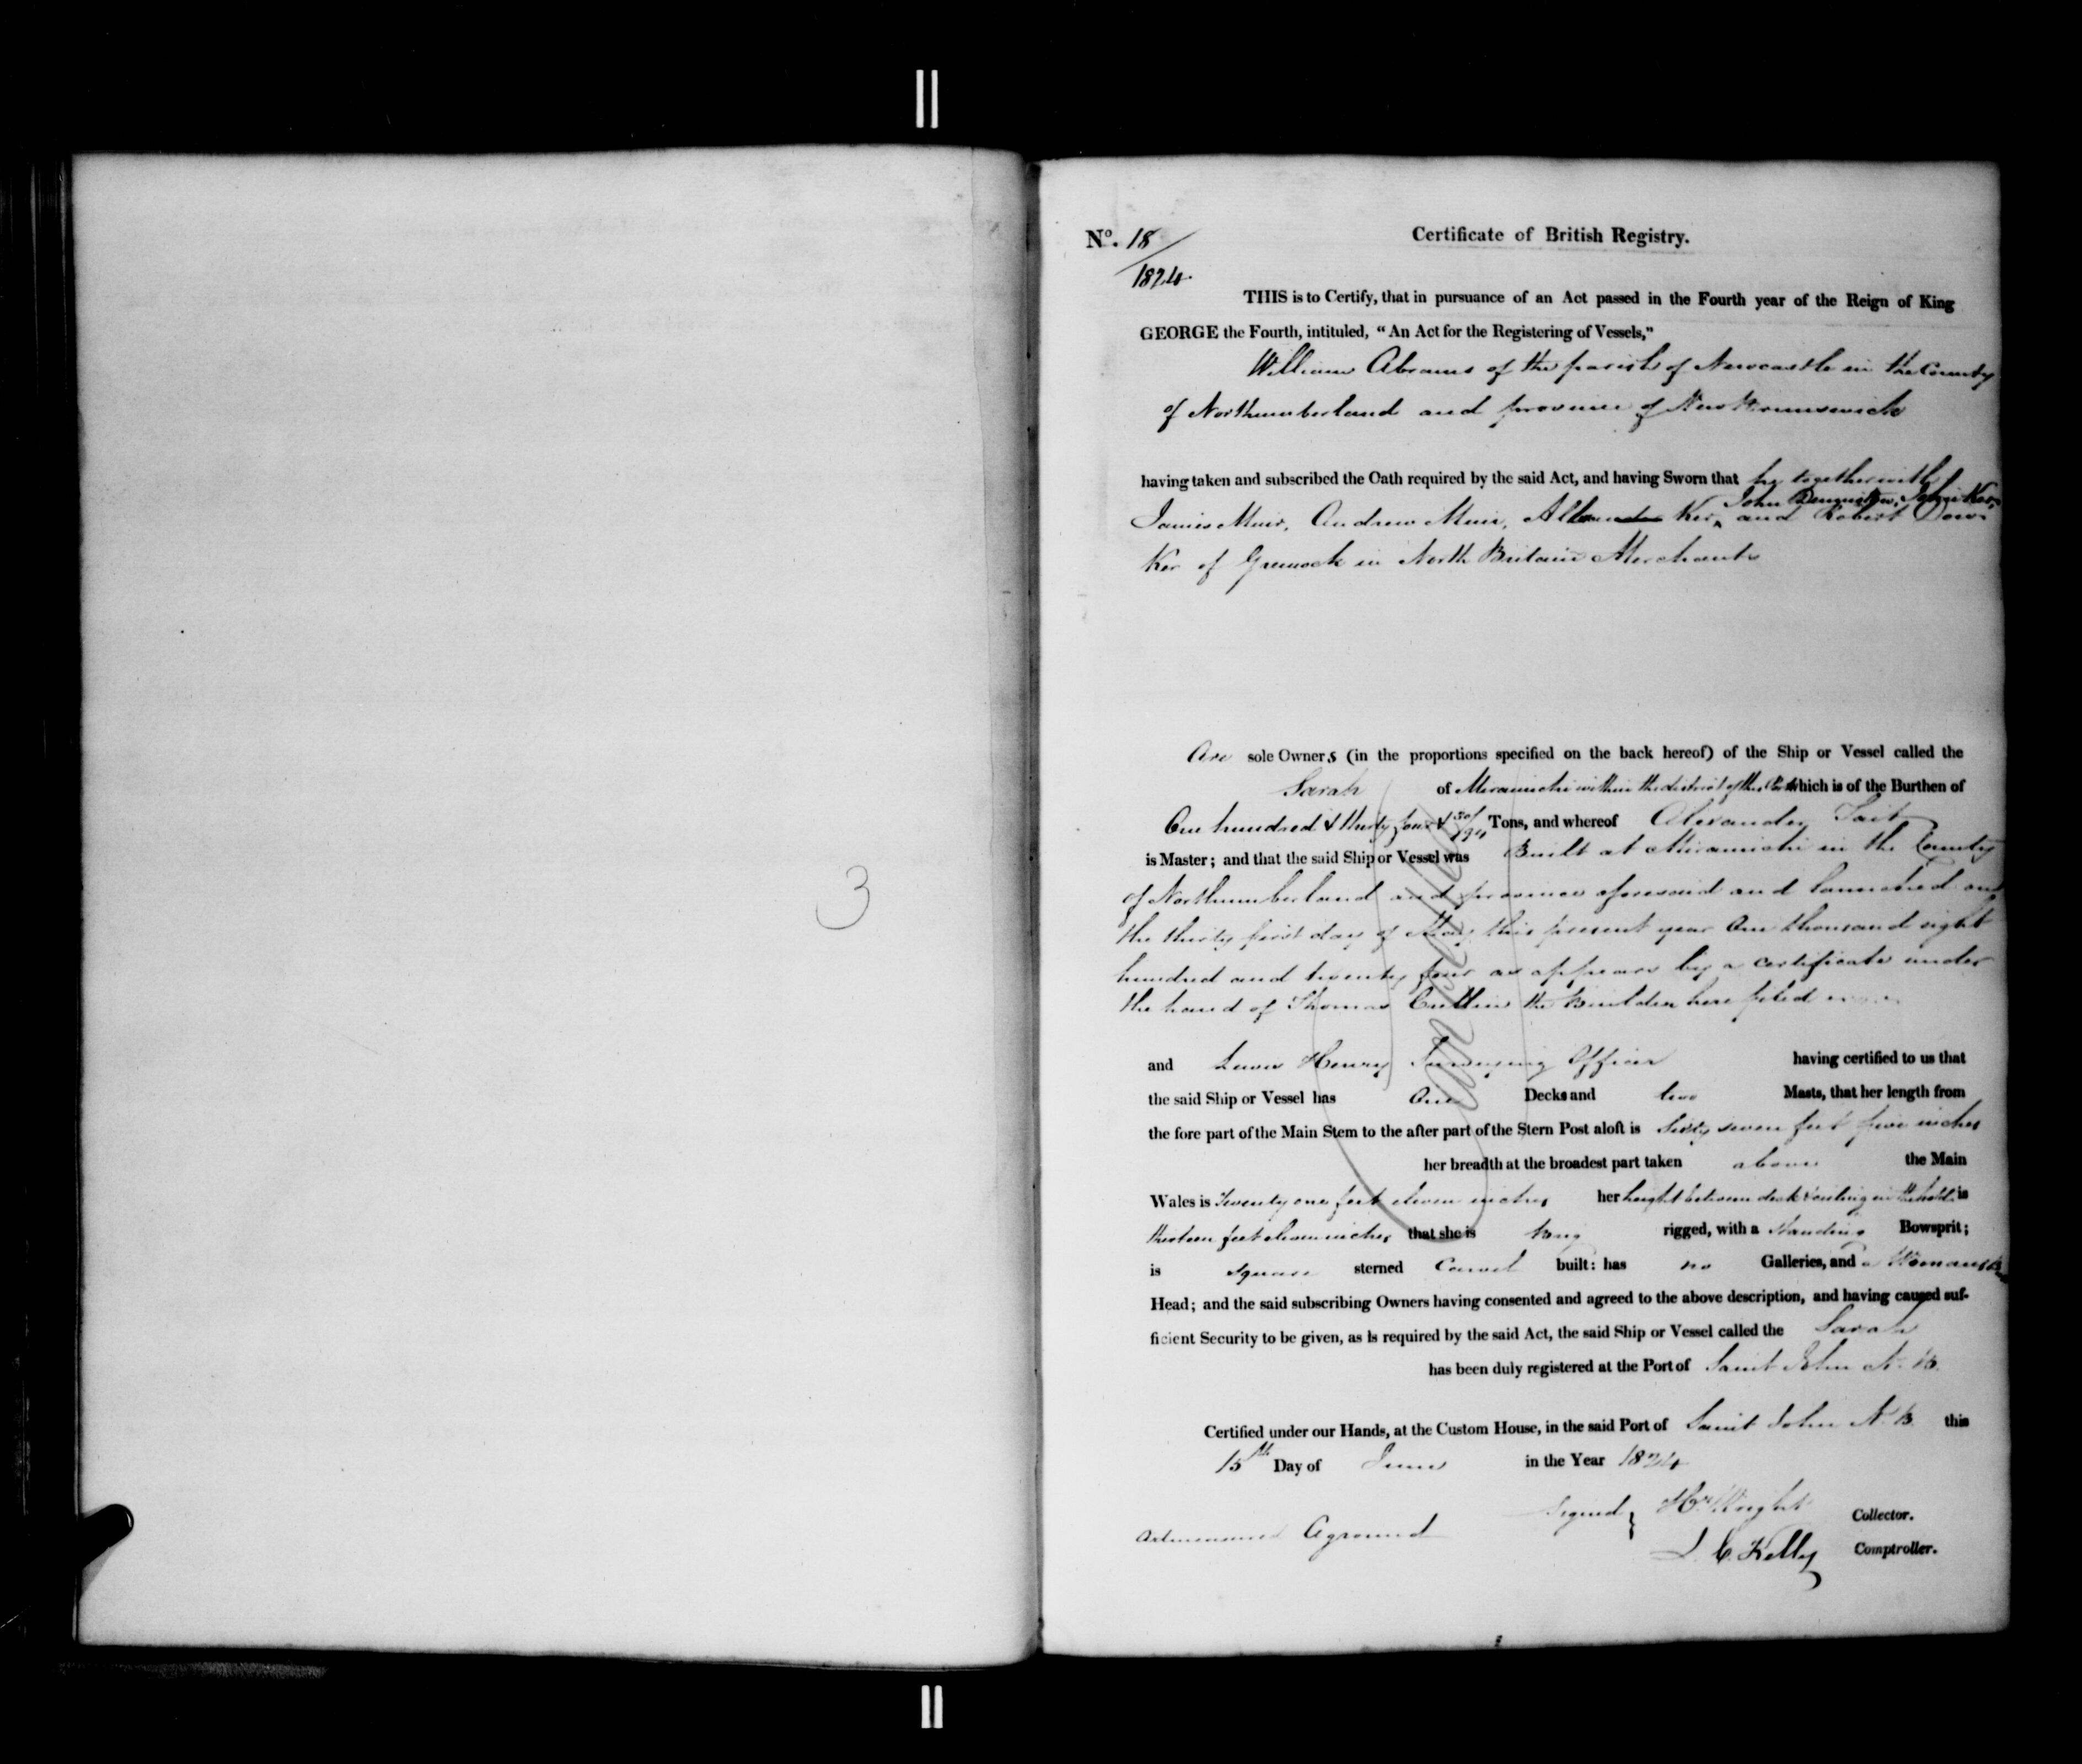 3
No. 18/1824
Certificate of British Registry.
THIS is to Certify, that in pursuance of an Act passed in the Fourth year of the Reign of King
GEORGE the Fourth, intituled, "An Act for the Registering of Vessels,"
William Abrams of the parish of Newcastle in the County
of Northumberland and province of New Brunswick
having taken and subscribed the Oath required by the said Act, and having Sworn that he together with
John Ker,
James Muir, Andrew Muir, Ker, and Robert
Ker of Greenock in North Britain Merchants
Are sole Owners (in the proportions specified on the back hereof) of the Ship or Vessel called the
Sarah of Miramichi within the district of this Port which is of the Burthen of
One hundred & thirty four & 30/94 Tons, and whereof Alexander Tait
is Master; and that the said Ship or Vessel was Built at Miramichi in the County
of Northumberland and province aforesaid and launched on
the thirty first day of May this present year One thousand eight
hundred and twenty four as appears by a certificate under
the hand of Thomas the Builder here filed
Cancelled
and Henry Surveying Officer having certified to us that
the said Ship or Vessel has One Decks and two Masts, that her length from
the fore part of the Main Stem to the after part of the Stern Post aloft is Sixty seven feet five inches
her breadth at the broadest part taken above the Main
Wales is Twenty one feet eleven inches her height between deck & ceiling in the hold is
thirteen feet eleven inches that she is Brig rigged, with a Standing Bowsprit;
is Square sterned Carvel built: has no Galleries, and a Womans
Head; and the said subscribing Owners having consented and agreed to the above description, and having caused suf-
ficient Security to be given, as is required by the said Act, the said Ship or Vessel called the Sarah
has been duly registered at the Port of Saint John N. B.
Certified under our Hands, at the Custom House, in the said Port of Saint John N. B. this
15th Day of June in the Year 1824
Signed Wright Collector.
Aground
Kelly Comptroller.